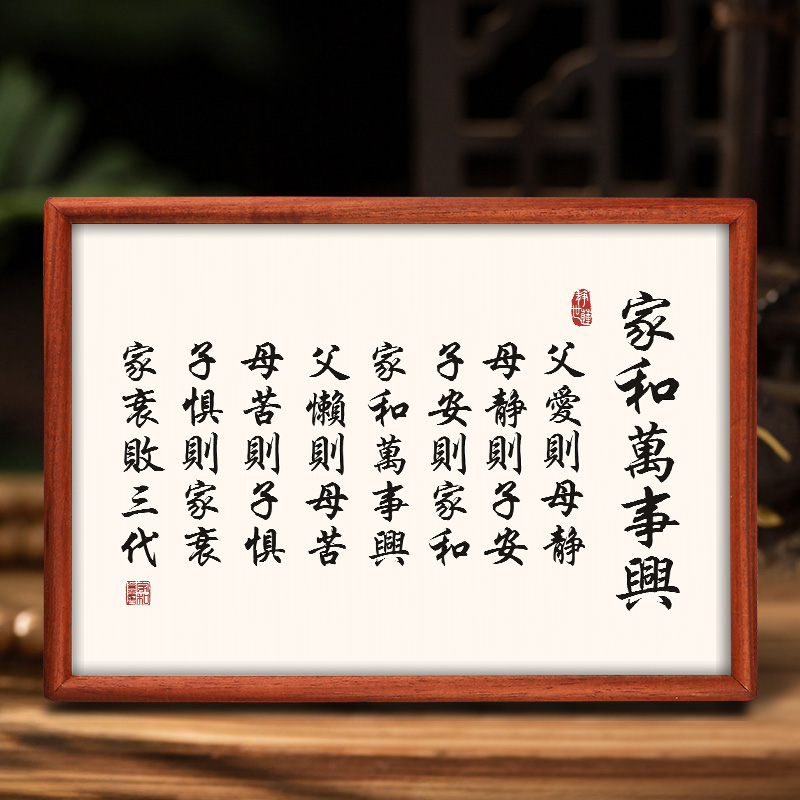 家和萬事興
父愛則母静
母静則子安
子安則家和
家和萬事興
父懶則母苦
母苦則子惧
子惧則家衰
家衰敗三代